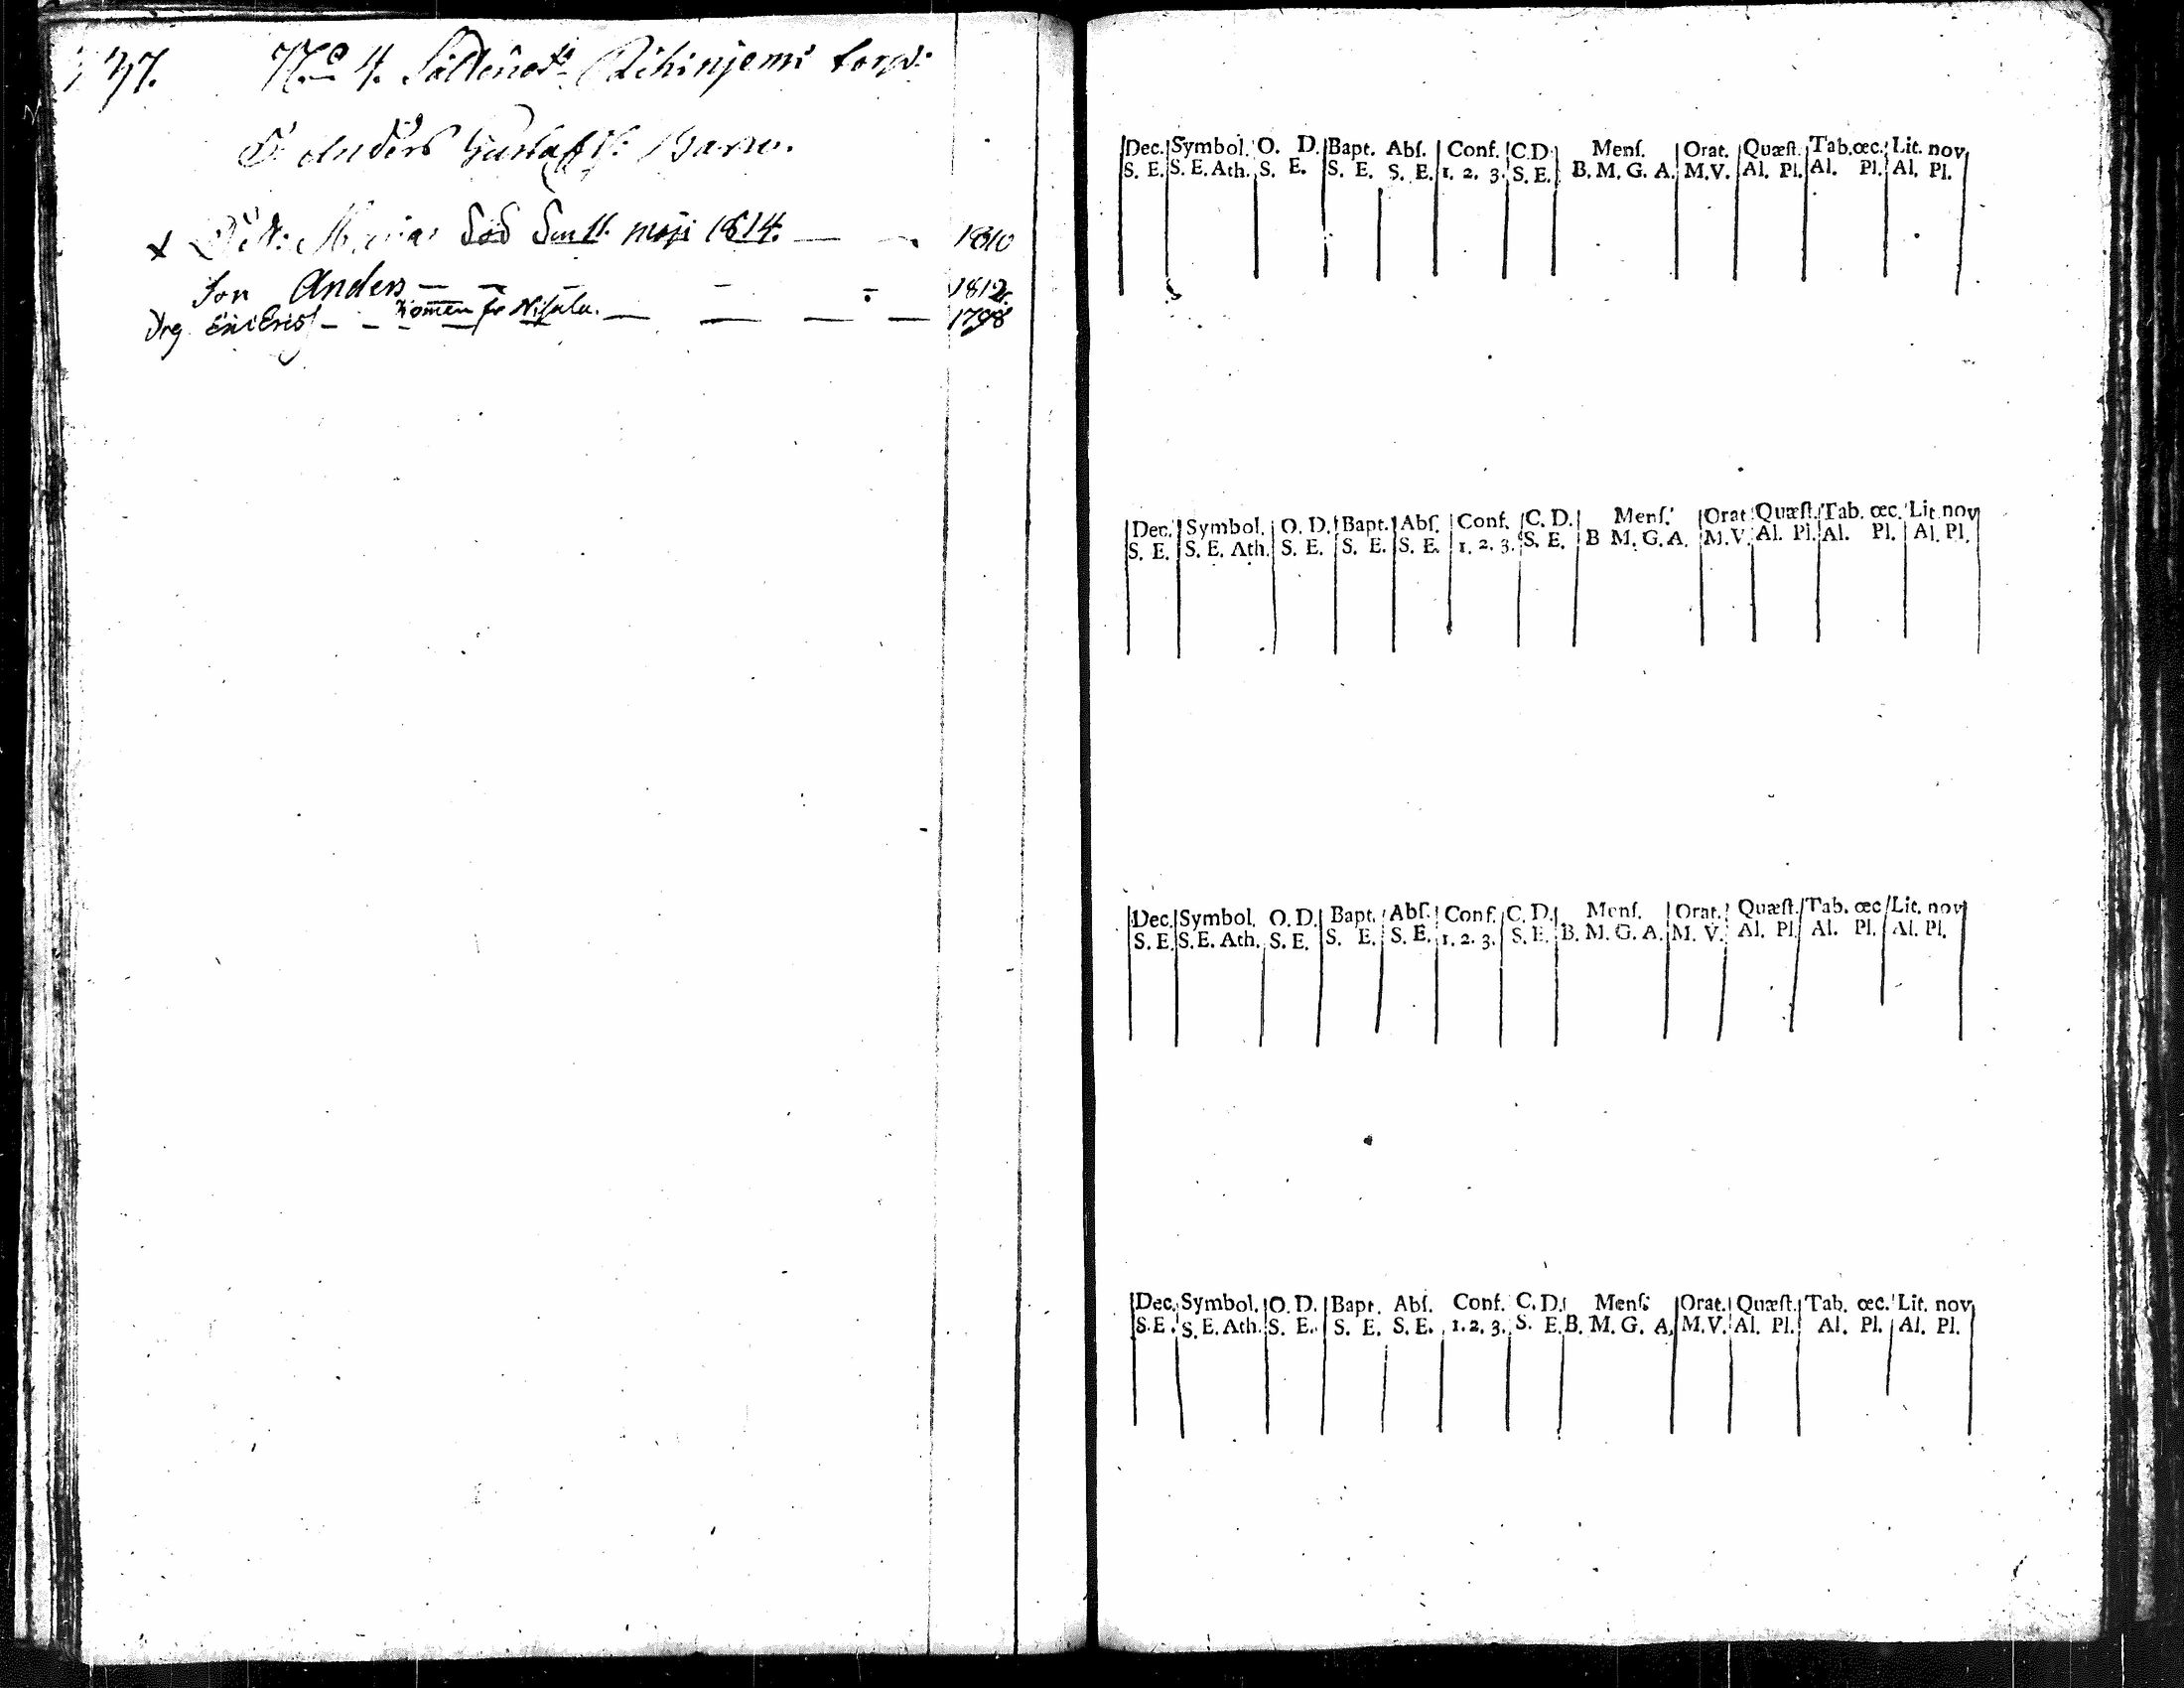 137. No 4. Rihinjemi torp:
Anders Gustafss: Barn.
x Dott: Maria död den 11 maji 1814. — 1810
Son Anders — — — — 1812.
Drg Eric Ericss — — kommen fr Nisula. — — — — 1798
Dec. Symbol. O. D. Bapt. Abſ. Conf. C.D. Menſ. Orat. Quæſt. Tab.œc. Lit. nov
S. E. S. E. Ath. S. E. S. E. S. E. 1. 2. 3. S. E. B. M. G. A. M.V. Al. Pl. Al. Pl. Al. Pl.
Dec. Symbol. O. D. Bapt. Abſ. Conf. C. D. Menſ. Orat Quæſt. Tab. œc. Lit. nov
S. E. S. E. Ath. S. E. S. E. S. E. 1. 2. 3. S. E. B M. G. A. M.V. Al. Pl. Al. Pl. Al. Pl.
Dec. Symbol. O. D. Bapt. Abſ. Conf. C. D. Menſ. Orat. Quæſt. Tab. œc Lit. nov
S. E. S. E. Ath. S. E. S. E. S. E. 1. 2. 3. S. E. B. M. G. A. M. V. Al. Pl. Al. Pl. Al. Pl.
Dec. Symbol. O. D. Bapt. Abſ. Conf. C. D. Menſ. Orat. Quæſt. Tab. œc. Lit. nov
S. E. S. E. Ath. S. E. S. E. S. E. 1. 2. 3. S. E. B. M. G. A. M.V. Al. Pl. Al. Pl. Al. Pl.